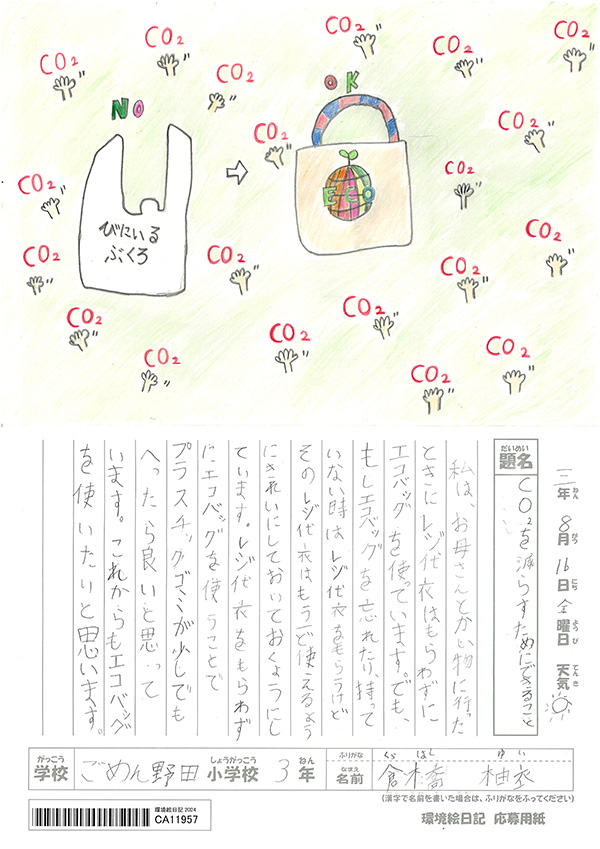 CO2
CO2
CO2
CO2
CO2
CO2
NO
OK
CO2
CO2
CO2
CO2
びにいる
ぶくろ
ECO
CO2
CO2
CO2
CO2
CO2
CO2
CO2
CO2
CO2
三年 8月 16日 金曜日 天気
ねん がつ にち ようび てんき
だいめい
題名
CO2を減らすためにできること
私は、お母さんとかい物に行った
ときにレジ代衣はもらわずに
エコバッグを使っています。でも、
もしエコバッグを忘れたり、持って
いない時はレジ代衣をもらうけど
そのレジ代衣はもう一ど使えるよう
にきれいにしておいておくようにし
ています。レジ代衣をもらわず
にエコバッグを使うことで
プラスチックゴミが少しでも
へったら良いと思って
います。これからもエコバッグ
を使いたいと思います。
がっこう しょうがっこう ねん
学校 ごめん野田 小学校 3年
ふりがな くらはし ゆい
なまえ
名前 倉橋 柚衣
(漢字で名前を書いた場合は、ふりがなをふってください)
環境絵日記 2024
CA11957
環境絵日記 応募用紙